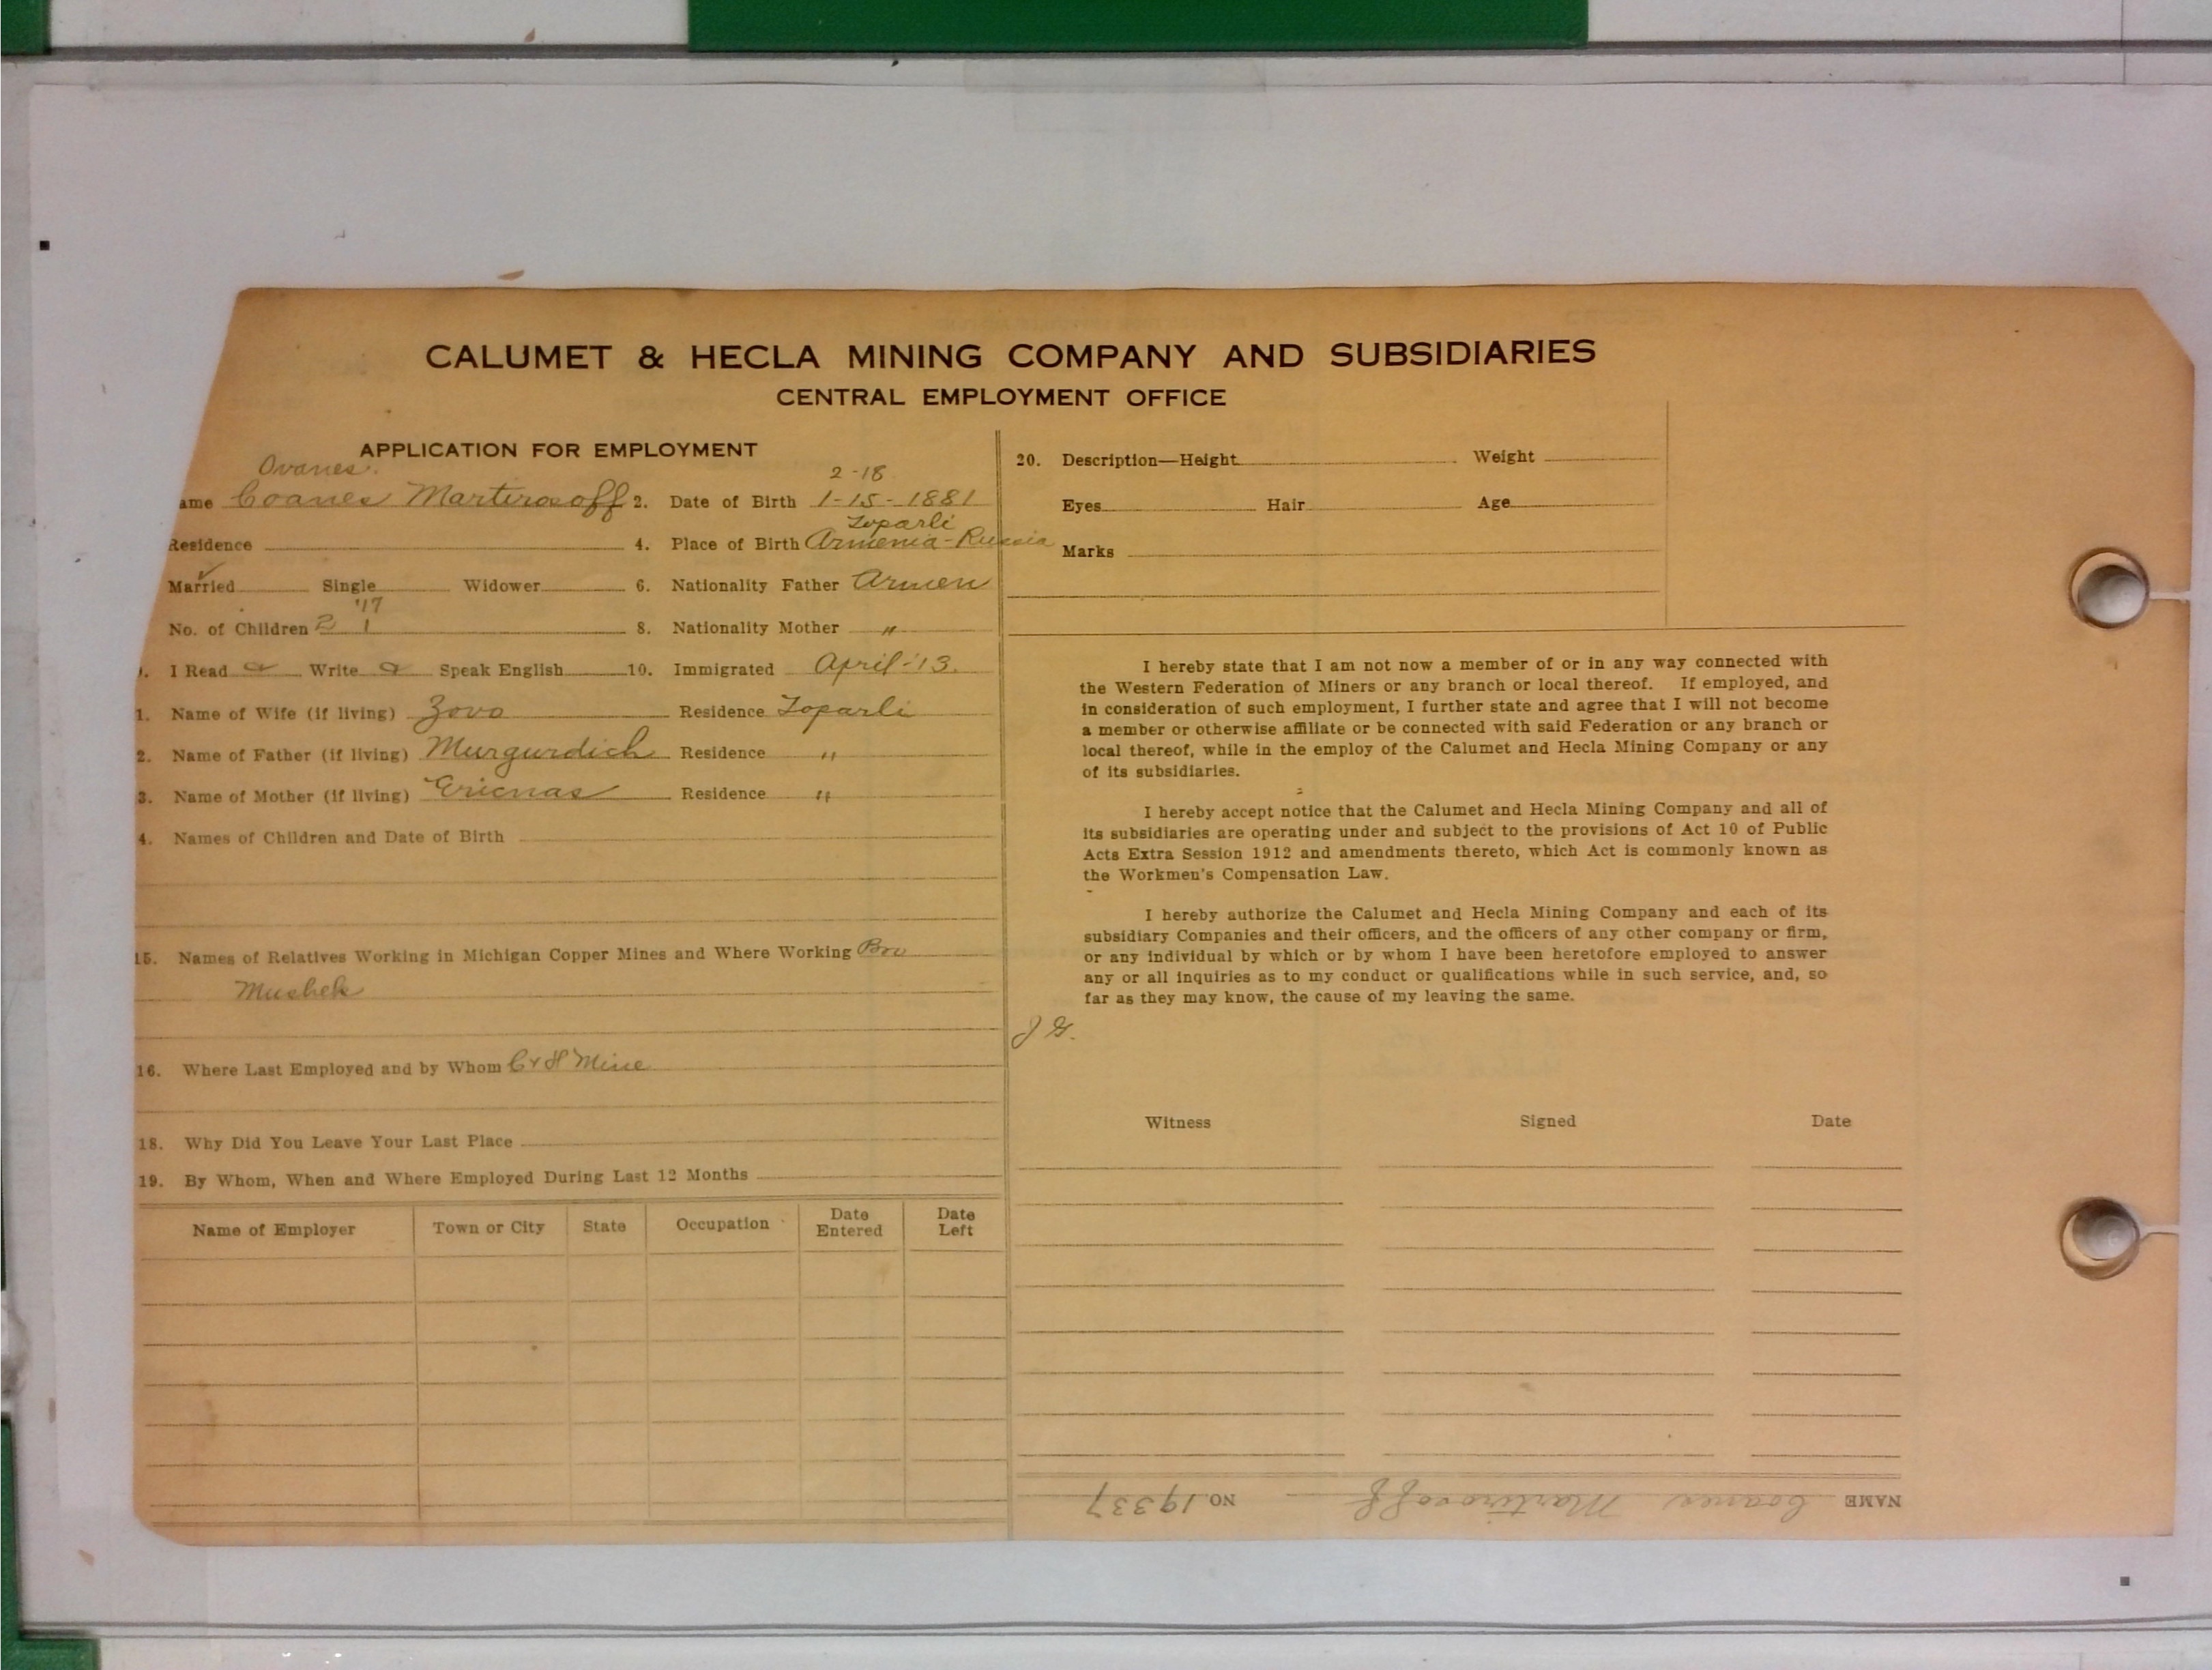 CALUMET & HECLA MINING COMPANY AND SUBSIDIARIES
CENTRAL EMPLOYMENT OFFICE
APPLICATION FOR EMPLOYMENT
Ovanes.
ame Coanes Martirosoff
2-18
2. Date of Birth 1-15-1881
Residence
Toparli
4. Place of Birth Armenia-Russia
Married ✓ Single Widower
6. Nationality Father Armen
'17
No. of Children 2 1
8. Nationality Mother "
. I Read Write Speak English
10. Immigrated April-'13.
1. Name of Wife (if living) Zovo Residence Toparli
2. Name of Father (if living) Murgurdich Residence "
3. Name of Mother (if living) Ericnas Residence "
4. Names of Children and Date of Birth
15. Names of Relatives Working in Michigan Copper Mines and Where Working Bro
Mushek
16. Where Last Employed and by Whom C & H Mine
18. Why Did You Leave Your Last Place
19. By Whom, When and Where Employed During Last 12 Months
Name of Employer Town or City State Occupation Date Entered Date Left
20. Description—Height Weight
Eyes Hair Age
Marks
I hereby state that I am not now a member of or in any way connected with
the Western Federation of Miners or any branch or local thereof. If employed, and
in consideration of such employment, I further state and agree that I will not become
a member or otherwise affiliate or be connected with said Federation or any branch or
local thereof, while in the employ of the Calumet and Hecla Mining Company or any
of its subsidiaries.
I hereby accept notice that the Calumet and Hecla Mining Company and all of
its subsidiaries are operating under and subject to the provisions of Act 10 of Public
Acts Extra Session 1912 and amendments thereto, which Act is commonly known as
the Workmen's Compensation Law.
I hereby authorize the Calumet and Hecla Mining Company and each of its
subsidiary Companies and their officers, and the officers of any other company or firm,
or any individual by which or by whom I have been heretofore employed to answer
any or all inquiries as to my conduct or qualifications while in such service, and, so
far as they may know, the cause of my leaving the same.
J G.
Witness Signed Date
NAME Coanes Martirosoff NO. 19337